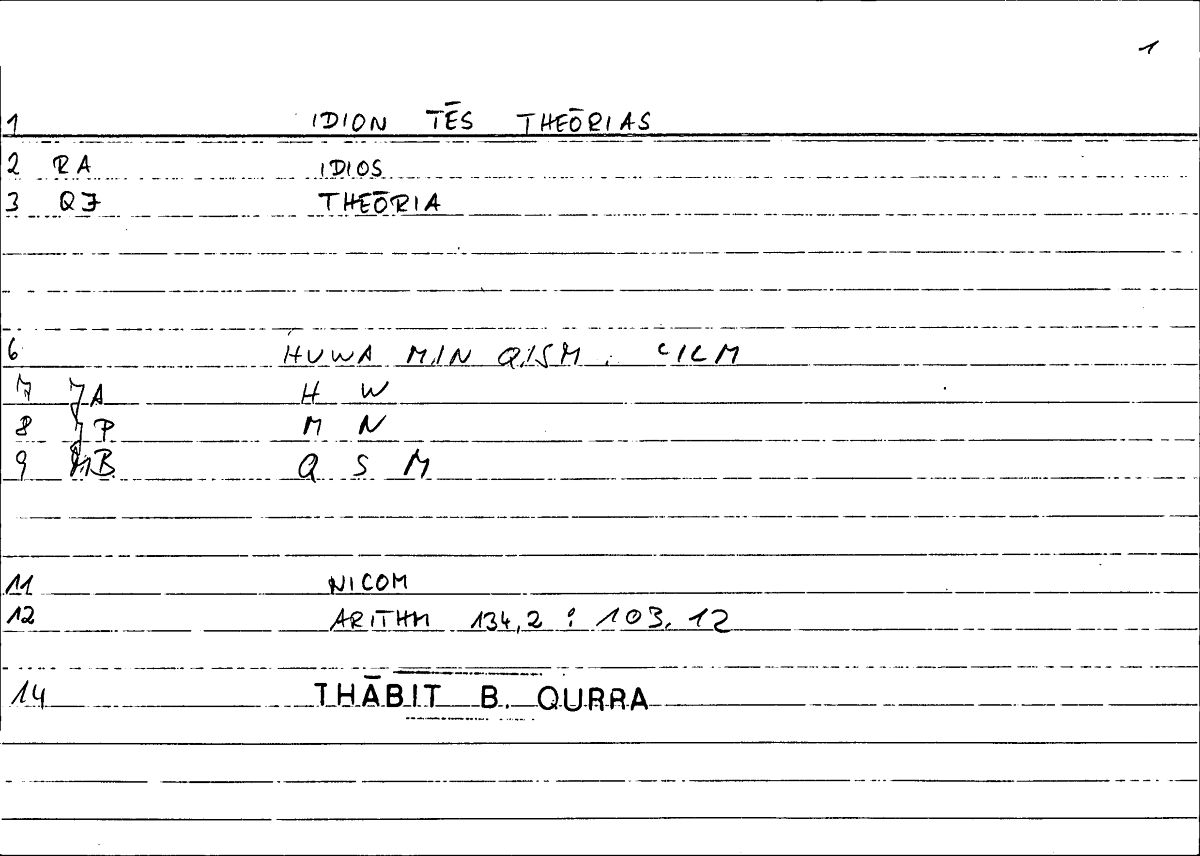 1
1 IDION TĒS THEŌRIAS
2 RA IDIOS
3 QJ THEŌRIA
6 HUWA MIN QISM . ʿILM
7 JA H W
8 JP M N
9 B Q S M
11 NICOM
12 ARITHM 134,2 : 103,12
14 THĀBIT B. QURRA